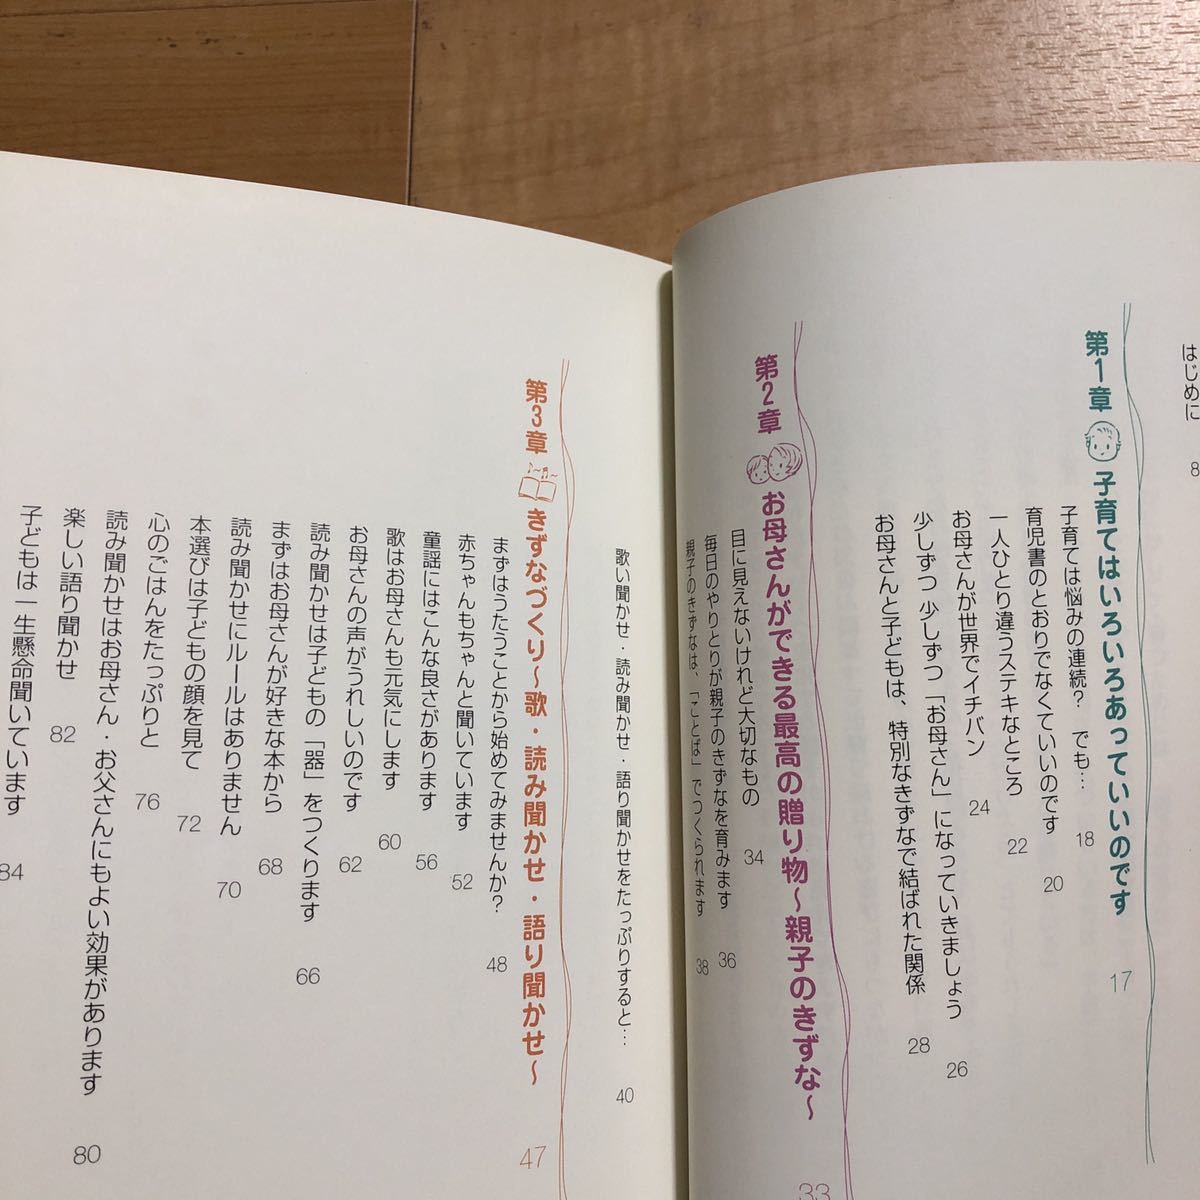 はじめに 8
第1章 子育てはいろいろあっていいのです 17
子育ては悩みの連続? でも… 18
育児書のとおりでなくていいのです 20
一人ひとり違うステキなところ 22
お母さんが世界でイチバン 24
少しずつ 少しずつ「お母さん」になっていきましょう 26
お母さんと子どもは、特別なきずなで結ばれた関係 28
第2章 お母さんができる最高の贈り物〜親子のきずな〜 33
目に見えないけれど大切なもの 34
毎日のやりとりが親子のきずなを育みます 36
親子のきずなは、「ことば」でつくられます 38
歌い聞かせ・読み聞かせ・語り聞かせをたっぷりすると… 40
第3章 きずなづくり〜歌・読み聞かせ・語り聞かせ〜 47
まずはうたうことから始めてみませんか? 48
赤ちゃんもちゃんと聞いています 52
童謡にはこんな良さがあります 56
歌はお母さんも元気にします 60
お母さんの声がうれしいのです 62
読み聞かせは子どもの「器」をつくります 66
まずはお母さんが好きな本から 68
読み聞かせにルールはありません 70
本選びは子どもの顔を見て 72
心のごはんをたっぷりと 76
読み聞かせはお母さん・お父さんにもよい効果があります 80
楽しい語り聞かせ 82
子どもは一生懸命聞いています 84